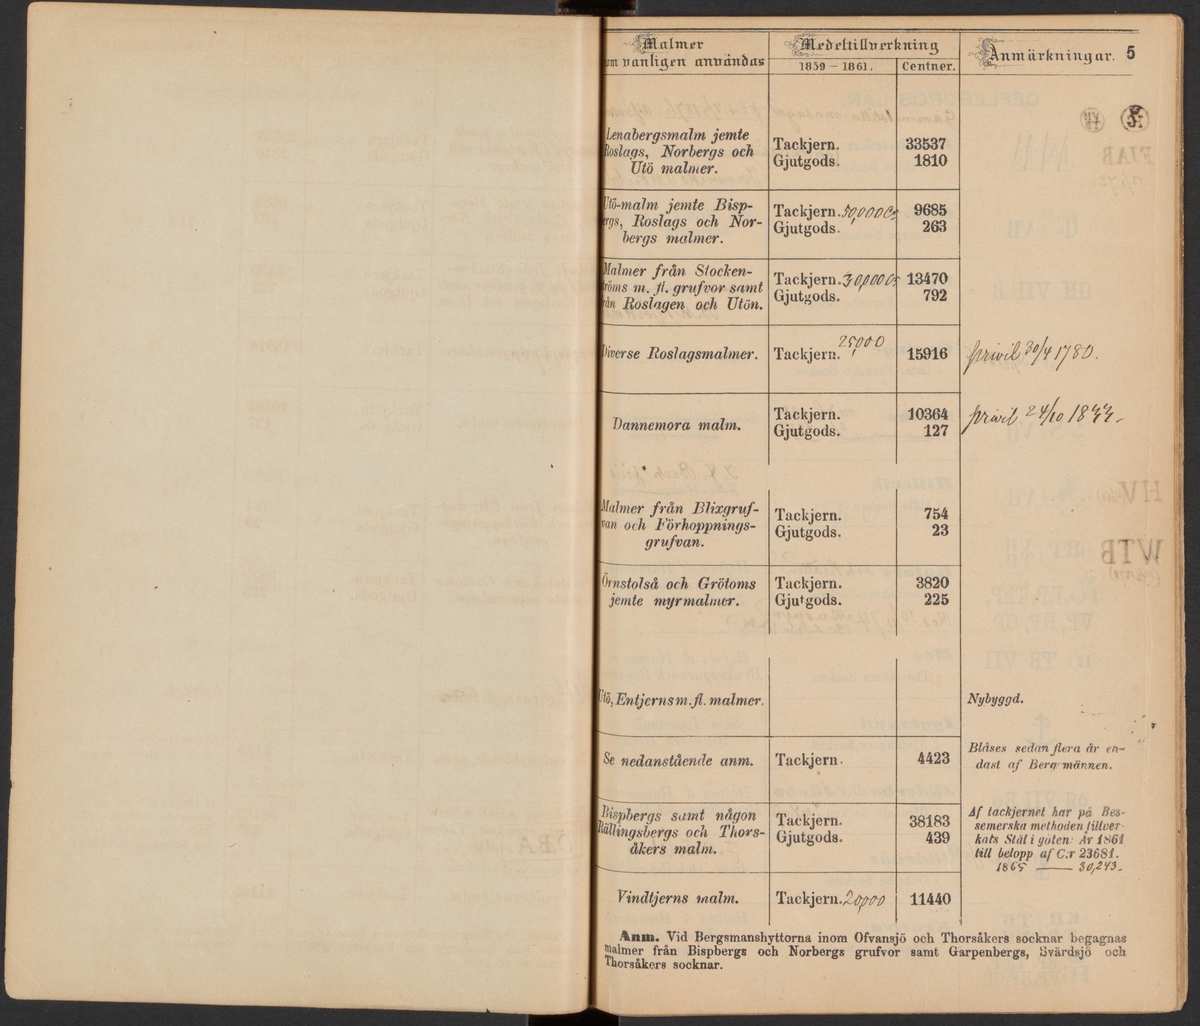 Malmer
som vanligen användas
Medeltillverkning
1859 – 1861.
Centner.
Anmärkningar.
5
Lenabergsmalm jemte
Roslags, Norbergs och
Utö malmer.
Tackjern. 33537
Gjutgods. 1810
Utö-malm jemte Bisp-
bergs, Roslags och Nor-
bergs malmer.
Tackjern. 50,000 Ct 9685
Gjutgods. 263
Malmer från Stocken-
ströms m. fl. grufvor samt
från Roslagen och Utön.
Tackjern. 30,000 Ct 13470
Gjutgods. 792
Diverse Roslagsmalmer.
25,000
Tackjern. 15916
privil 30/4 1780.
Dannemora malm.
Tackjern. 10364
Gjutgods. 127
privil 24/10 1844.
Malmer från Blixgruf-
van och Förhoppnings-
grufvan.
Tackjern. 754
Gjutgods. 23
Örnstolså och Grötoms
jemte myrmalmer.
Tackjern. 3820
Gjutgods. 225
Utö, Entjerns m. fl. malmer.
Nybyggd.
Se nedanstående anm.
Tackjern. 4423
Blåses sedan flera år en-
dast af Bergsmännen.
Bispbergs samt någon
Rällingsbergs och Thors-
åkers malm.
Tackjern. 38183
Gjutgods. 439
Af tackjernet har på Bes-
semerska methoden tillver-
kats Stål i göten: År 1861
till belopp af C:r 23681.
1865 —— 30,243.
Vindtjerns malm.
Tackjern. 20,000 11440
Anm. Vid Bergsmanshyttorna inom Ofvansjö och Thorsåkers socknar begagnas
malmer från Bispbergs och Norbergs grufvor samt Garpenbergs, Svärdsjö och
Thorsåkers socknar.